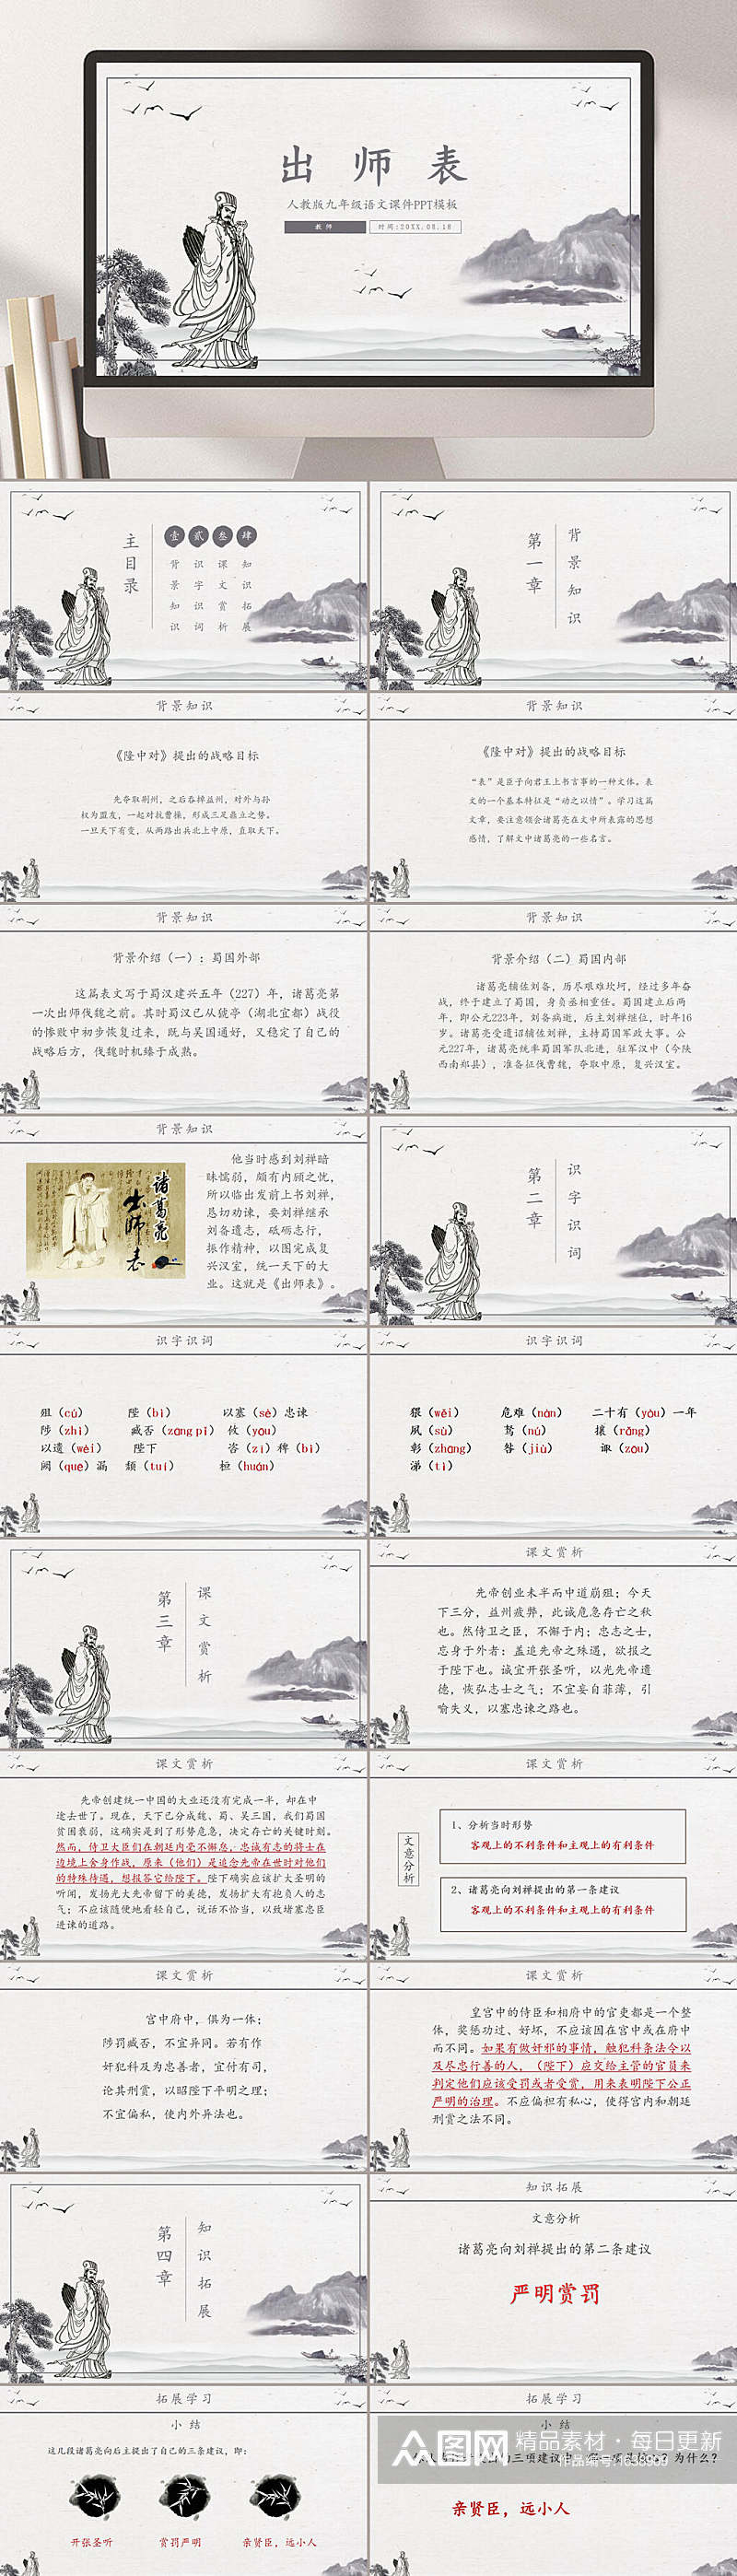 出师表
人教版九年级语文课件PPT模板
教师
时间:20XX.08.18
主目录
壹 贰 叁 肆
背景知识
识字识词
课文赏析
知识拓展
第一章
背景知识
背景知识
《隆中对》提出的战略目标
先夺取荆州，之后吞掉益州，对外与孙
权为盟友，一起对抗曹操，形成三足鼎立之势。
一旦天下有变，从两路出兵北上中原，直取天下。
背景知识
《隆中对》提出的战略目标
“表”是臣子向君王上书言事的一种文体。表
文的一个基本特征是“动之以情”。学习这篇
文章，要注意领会诸葛亮在文中所表露的思想
感情，了解文中诸葛亮的一些名言。
背景知识
背景介绍（一）：蜀国外部
这篇表文写于蜀汉建兴五年（227）年，诸葛亮第
一次出师伐魏之前。其时蜀汉已从猇亭（湖北宜都）战役
的惨败中初步恢复过来，既与吴国通好，又稳定了自己的
战略后方，伐魏时机臻于成熟。
背景知识
背景介绍（二）蜀国内部
诸葛亮辅佐刘备，历尽艰难坎坷，经过多年奋
战，终于建立了蜀国，身负丞相重任。蜀国建立后两
年，即公元223年，刘备病逝，后主刘禅继位，时年16
岁。诸葛亮受遗诏辅佐刘禅，主持蜀国军政大事。公
元227年，诸葛亮统率蜀国军队北进，驻军汉中（今陕
西南郑县），准备征伐曹魏，夺取中原，复兴汉室。
背景知识
诸葛亮
出师表
他当时感到刘禅暗
昧懦弱，颇有内顾之忧，
所以临出发前上书刘禅，
恳切劝谏，要刘禅继承
刘备遗志，砥砺志行，
振作精神，以图完成复
兴汉室，统一天下的大
业。这就是《出师表》。
第二章
识字识词
识字识词
殂（cú） 陛（bì） 以塞（sè）忠谏
陟（zhì） 臧否（zāng pǐ） 攸（yōu）
以遗（wèi） 陛下 咨（zī）裨（bì）
阙（quē）漏 颓（tuí） 桓（huán）
识字识词
猥（wěi） 危难（nàn） 二十有（yòu）一年
夙（sù） 驽（nú） 攘（rǎng）
彰（zhāng） 咎（jiù） 诹（zōu）
涕（tì）
第三章
课文赏析
课文赏析
先帝创业未半而中道崩殂；今天
下三分，益州疲弊，此诚危急存亡之秋
也。然侍卫之臣，不懈于内；忠志之士，
忘身于外者：盖追先帝之殊遇，欲报之
于陛下也。诚宜开张圣听，以光先帝遗
德，恢弘志士之气；不宜妄自菲薄，引
喻失义，以塞忠谏之路也。
课文赏析
先帝创建统一中国的大业还没有完成一半，却在中
途去世了。现在，天下已分成魏、蜀、吴三国，我们蜀国
贫困衰弱，这确实是到了形势危急，决定存亡的关键时刻。
然而，侍卫大臣们在朝廷内毫不懈怠，忠诚有志的将士在
边境上舍身作战，原来（他们）是追念先帝在世时对他们
的特殊待遇，想报答它给陛下。陛下确实应该扩大圣明的
听闻，发扬光大先帝留下的美德，发扬扩大有抱负人的志
气；不应该随便地看轻自己，说话不恰当，以致堵塞忠臣
进谏的道路。
课文赏析
文意分析
1、分析当时形势
客观上的不利条件和主观上的有利条件
2、诸葛亮向刘禅提出的第一条建议
客观上的不利条件和主观上的有利条件
课文赏析
宫中府中，俱为一体；
陟罚臧否，不宜异同。若有作
奸犯科及为忠善者，宜付有司，
论其刑赏，以昭陛下平明之理；
不宜偏私，使内外异法也。
课文赏析
皇宫中的侍臣和相府中的官吏都是一个整
体，奖惩功过、好坏，不应该因在宫中或在府中
而不同。如果有做奸邪的事情，触犯科条法令以
及尽忠行善的人，（陛下）应交给主管的官员来
判定他们应该受罚或者受赏，用来表明陛下公正
严明的治理。不应偏袒有私心，使得宫内和朝廷
刑赏之法不同。
第四章
知识拓展
知识拓展
文意分析
诸葛亮向刘禅提出的第二条建议
严明赏罚
拓展学习
小 结
这几段诸葛亮向后主提出了自己的三条建议，即：
开张圣听 赏罚严明 亲贤臣，远小人
拓展学习
小 结
三项建议中
为什么？
亲贤臣，远小人
众图网
精品素材·每日更新
作品编号:1638909